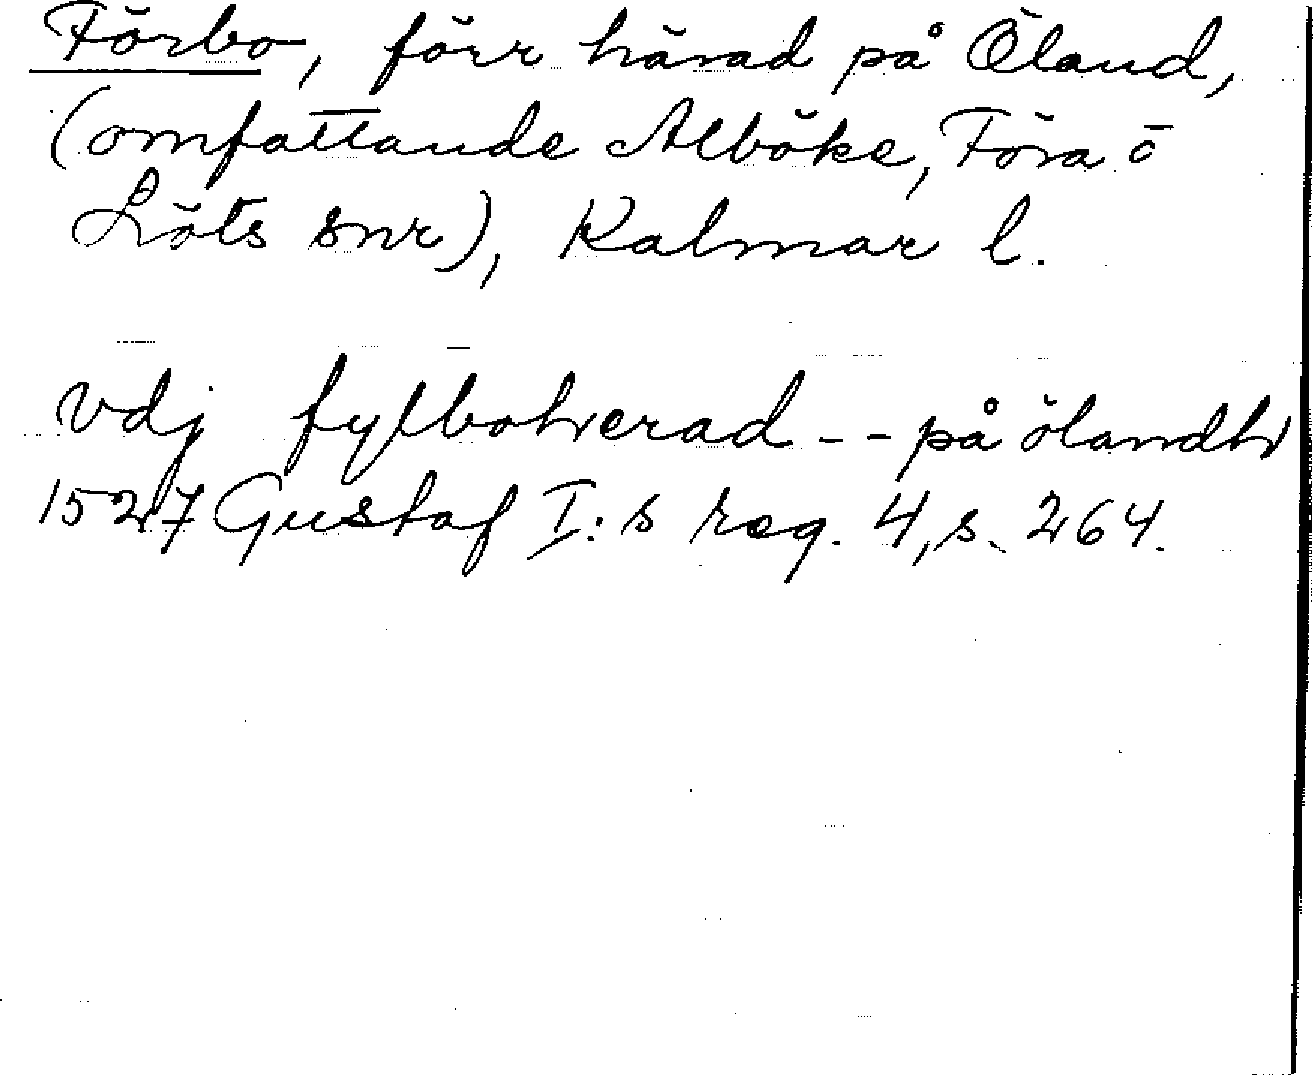 Förbo, förr härad på Öland,
(omfattande Alböke, Föra o
Löts snr), Kalmar l.
vdj fylboherad -- på ölandh
1527 Gustaf I:s reg. 4, s. 264.